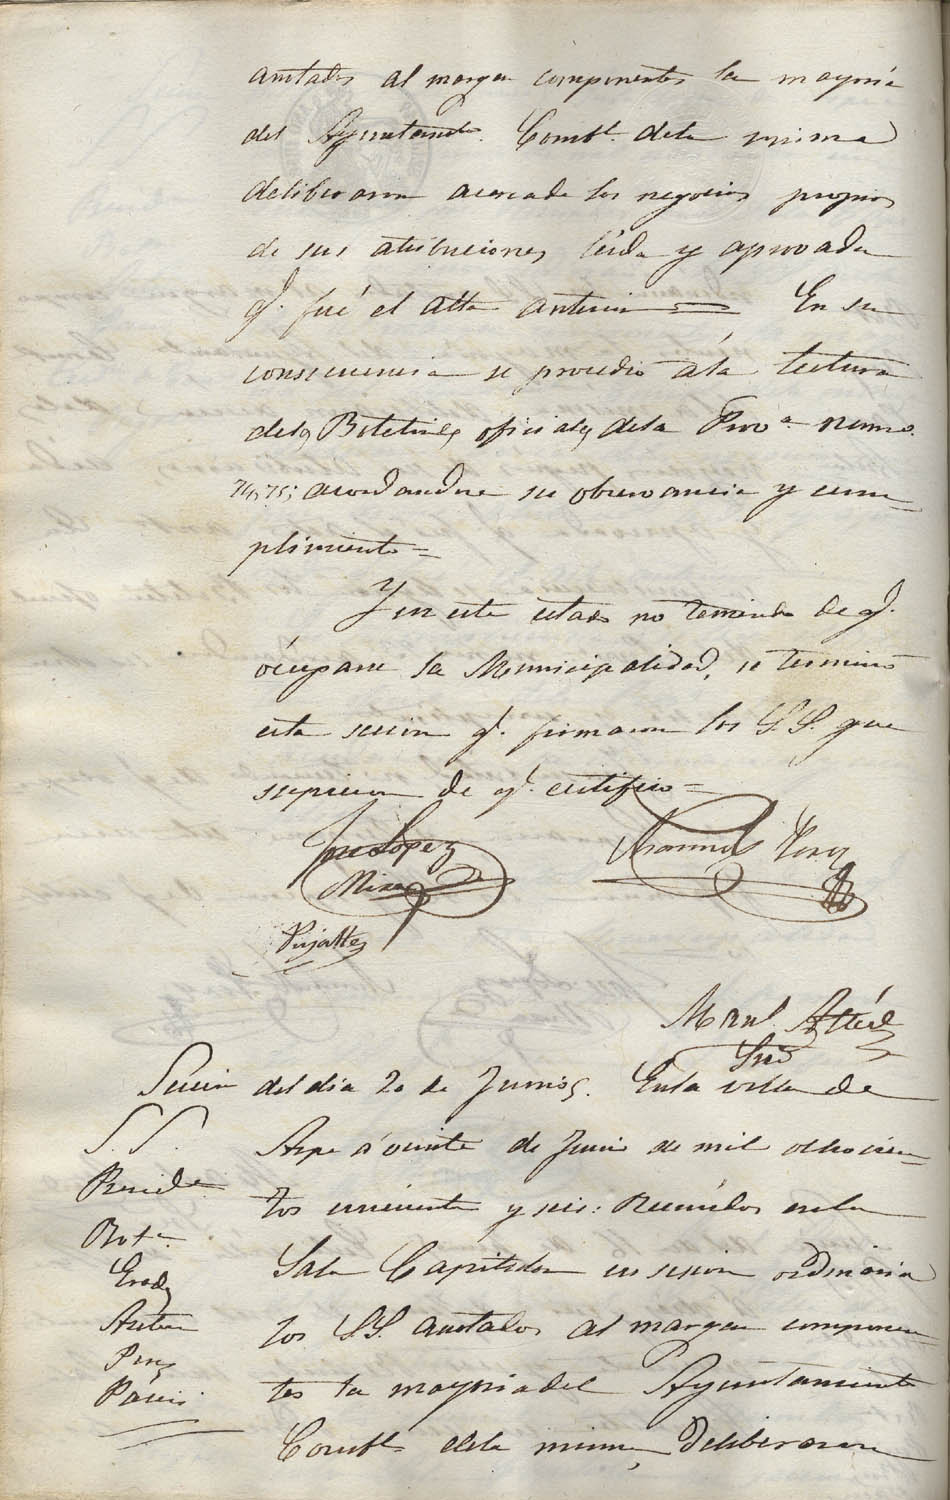 anotados al margen componentes la mayoria
del Ayuntamto. Constl. dela misma
deliberaron acercade los negocios propios
de sus atribuciones leida y aprovada
q. fué el atta anterior = En su
consecuencia se procedió ála lectura
delos Boletines oficiales dela Prova. numo.
74, 75; acordandose su observancia y cum-
plimiento =
Y en este estado no teniendo de q.
ócuparse la Municipalidad, se terminó
esta sesion q. firmaron los S.S. que
supieron de q. certifico =
Jose Lopez
Mira
Manuel Perez
Pujalte
Manl. Alted
Srio
Sesion del dia 20 de Junio. Enla villa de
S. S.
Aspe á veinte de Junio de mil ochocien-
Preside.
tos cincuenta y seis: Reunidos enla
Bota.
Sala Capitular en sesion ordinaria
los S.S. anotados al margen componen-
Perez
tes la mayoriadel Ayuntamiento
Constl. dela misma, Deliberaron